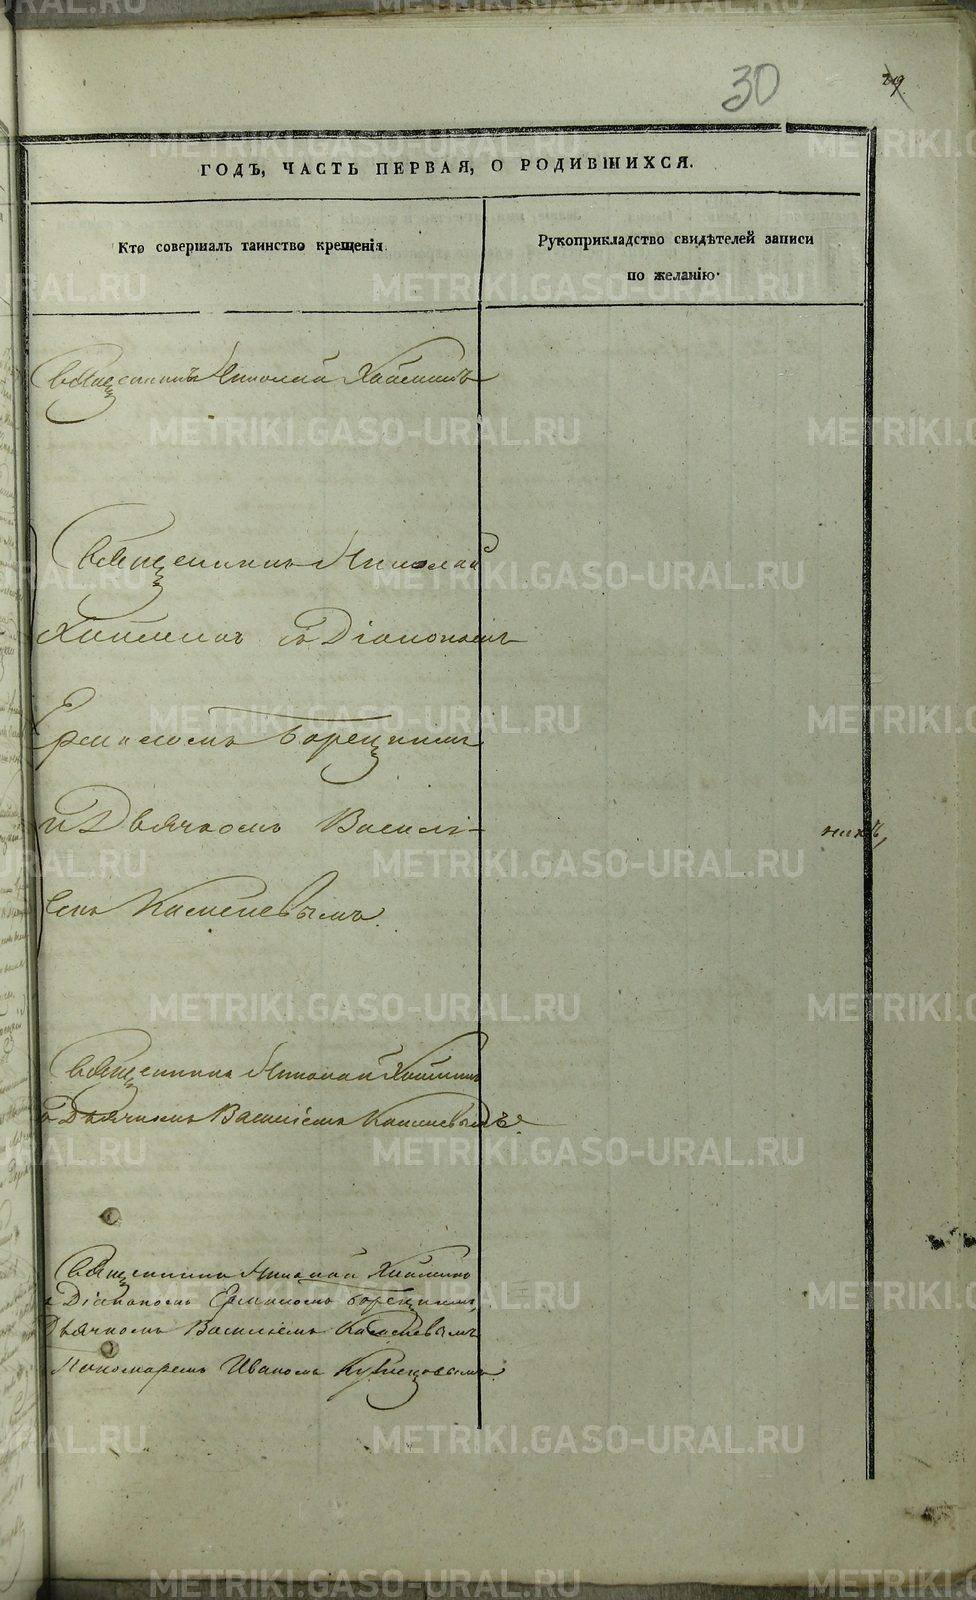 30
29
ГОДЪ, ЧАСТЬ ПЕРВАЯ, О РОДИВШИХСЯ.
Кто совершалъ таинство крещенія.
Рукоприкладство свидѣтелей записи
по желанію.
Священникъ Николай
Священникъ Николай
съ Діакономъ
Ермиломъ Борецкимъ
и Дьячкомъ Василі-
емъ Каменевымъ.
Священникъ Николай
съ Дьячкомъ Василіемъ Каменевымъ.
Священникъ Николай
съ Діакономъ Ермиломъ Борецкимъ,
Дьячкомъ Василіемъ Каменевымъ
Пономаремъ Иваномъ Кузнецовымъ.
METRIKI.GASO-URAL.RU